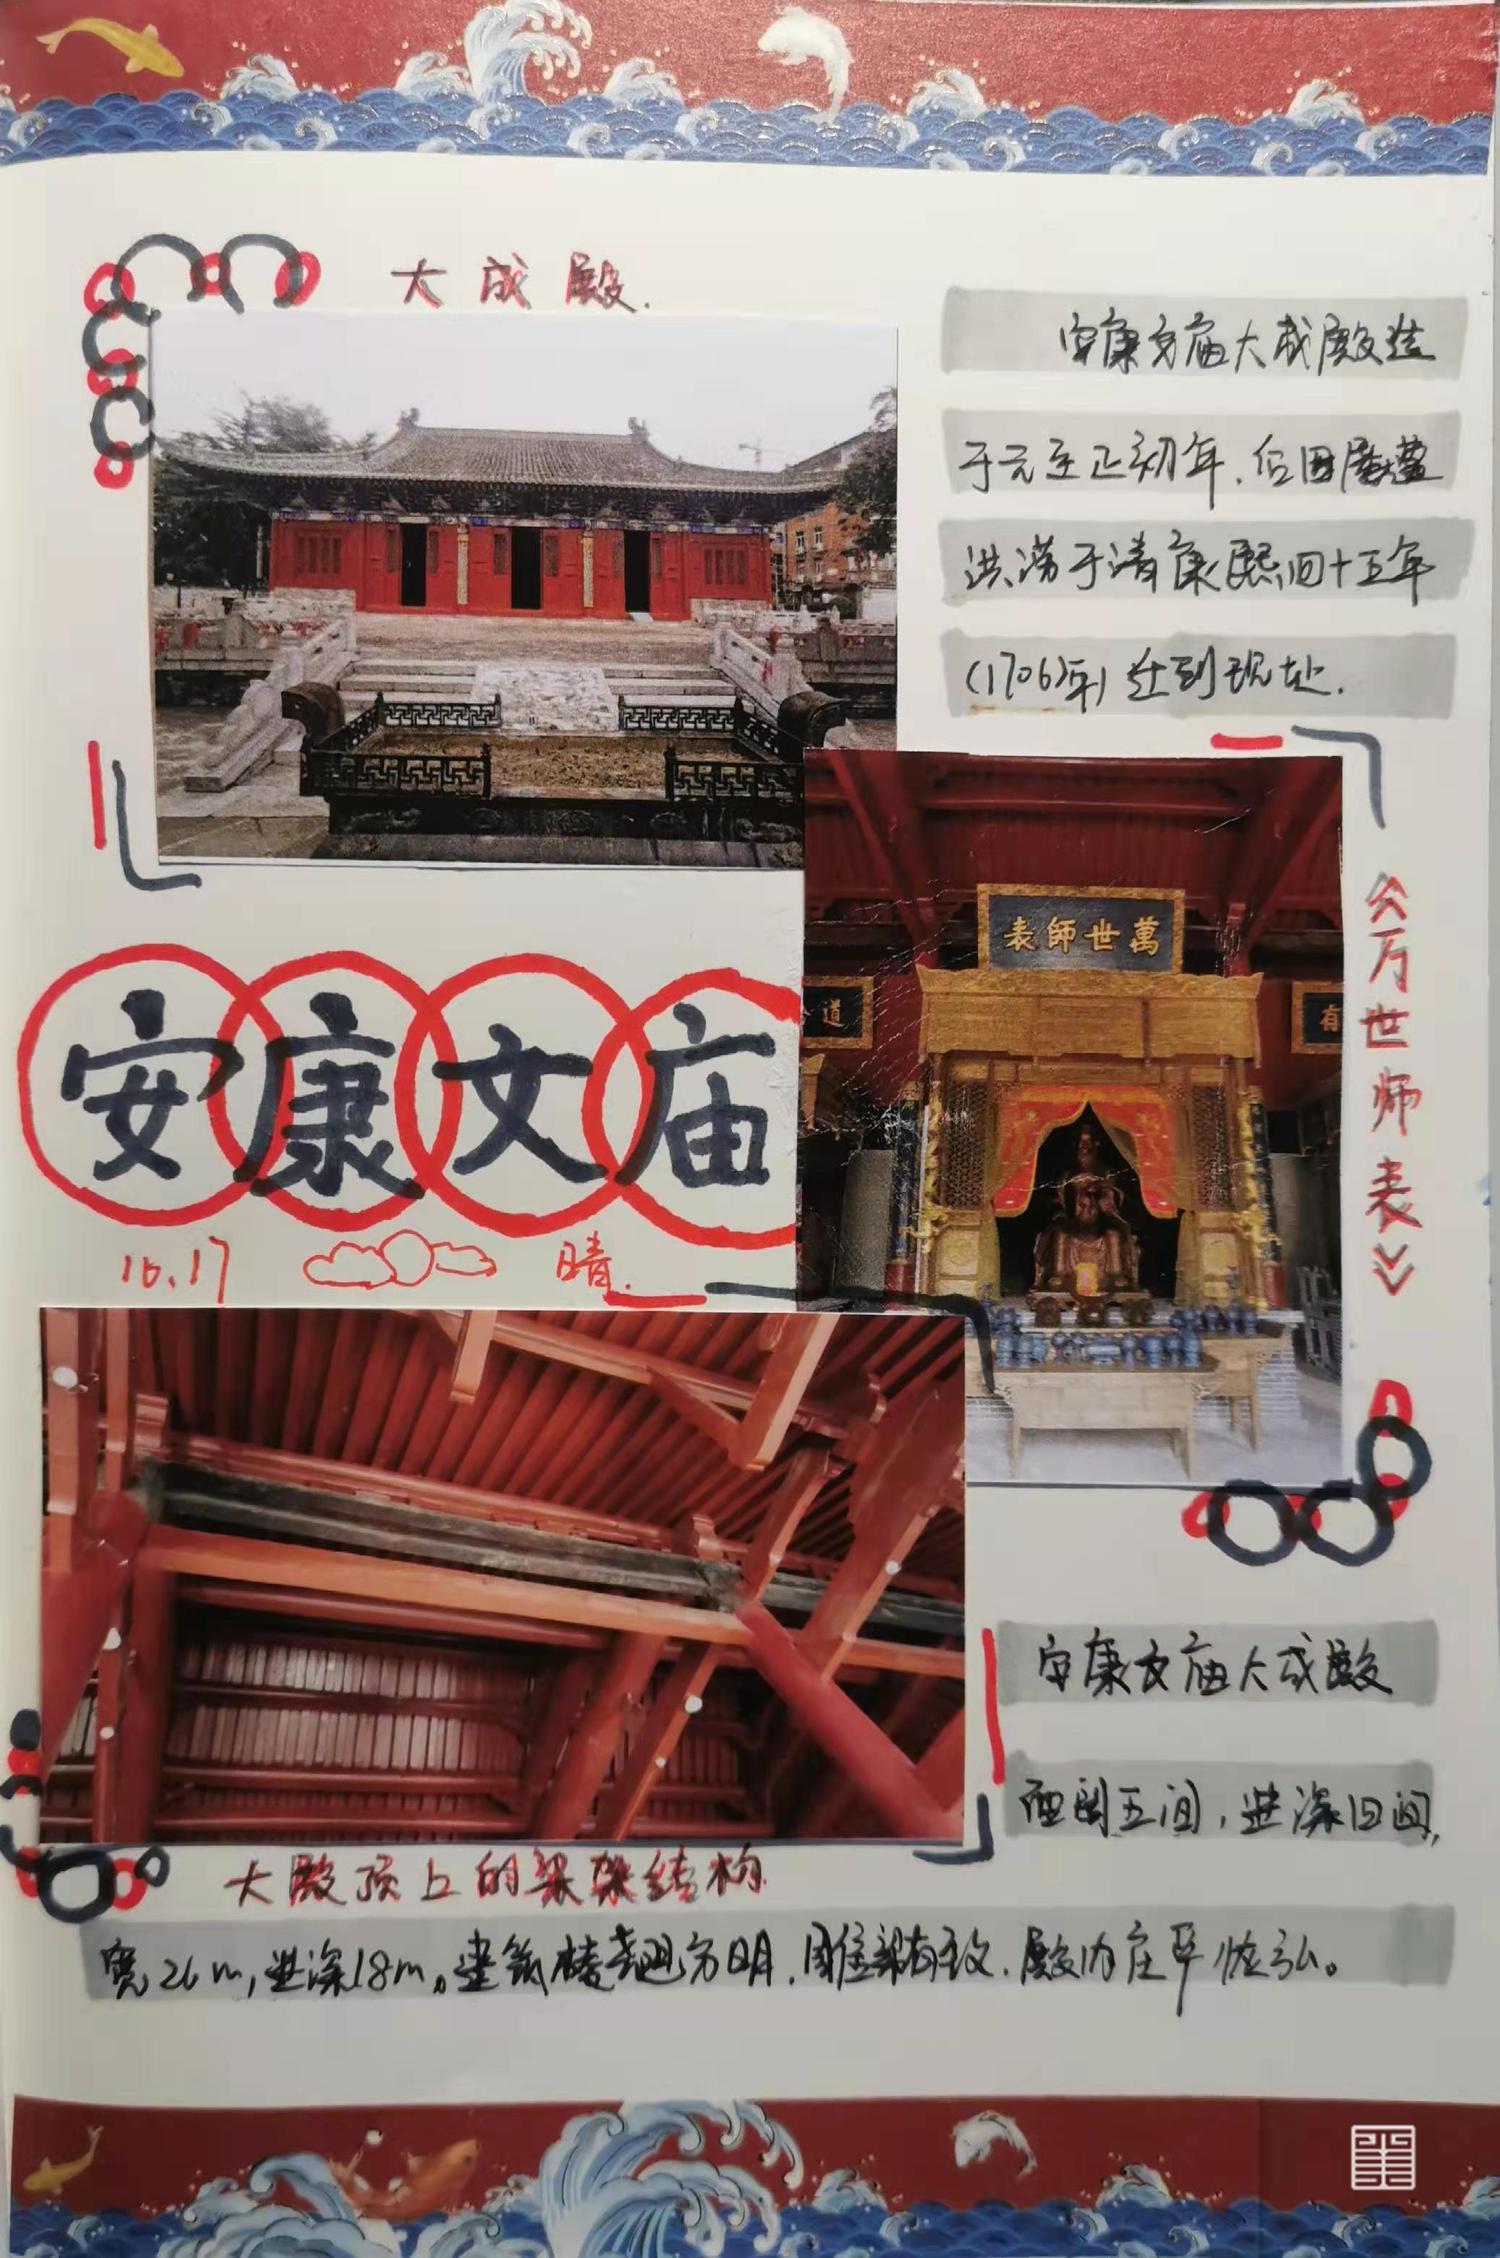 大成殿.
安康文庙大成殿造
于元至正初年.后因屡遭
洪涝于清康熙四十五年
(1706年)迁到现址.
萬世師表
道
有
《万世师表》
安康文庙
10.17 晴.
大殿顶上的梁架结构
安康文庙大成殿
面阔五间,进深四间,
宽26m,进深18m。建筑棱角分明,殿内庄严恢弘。